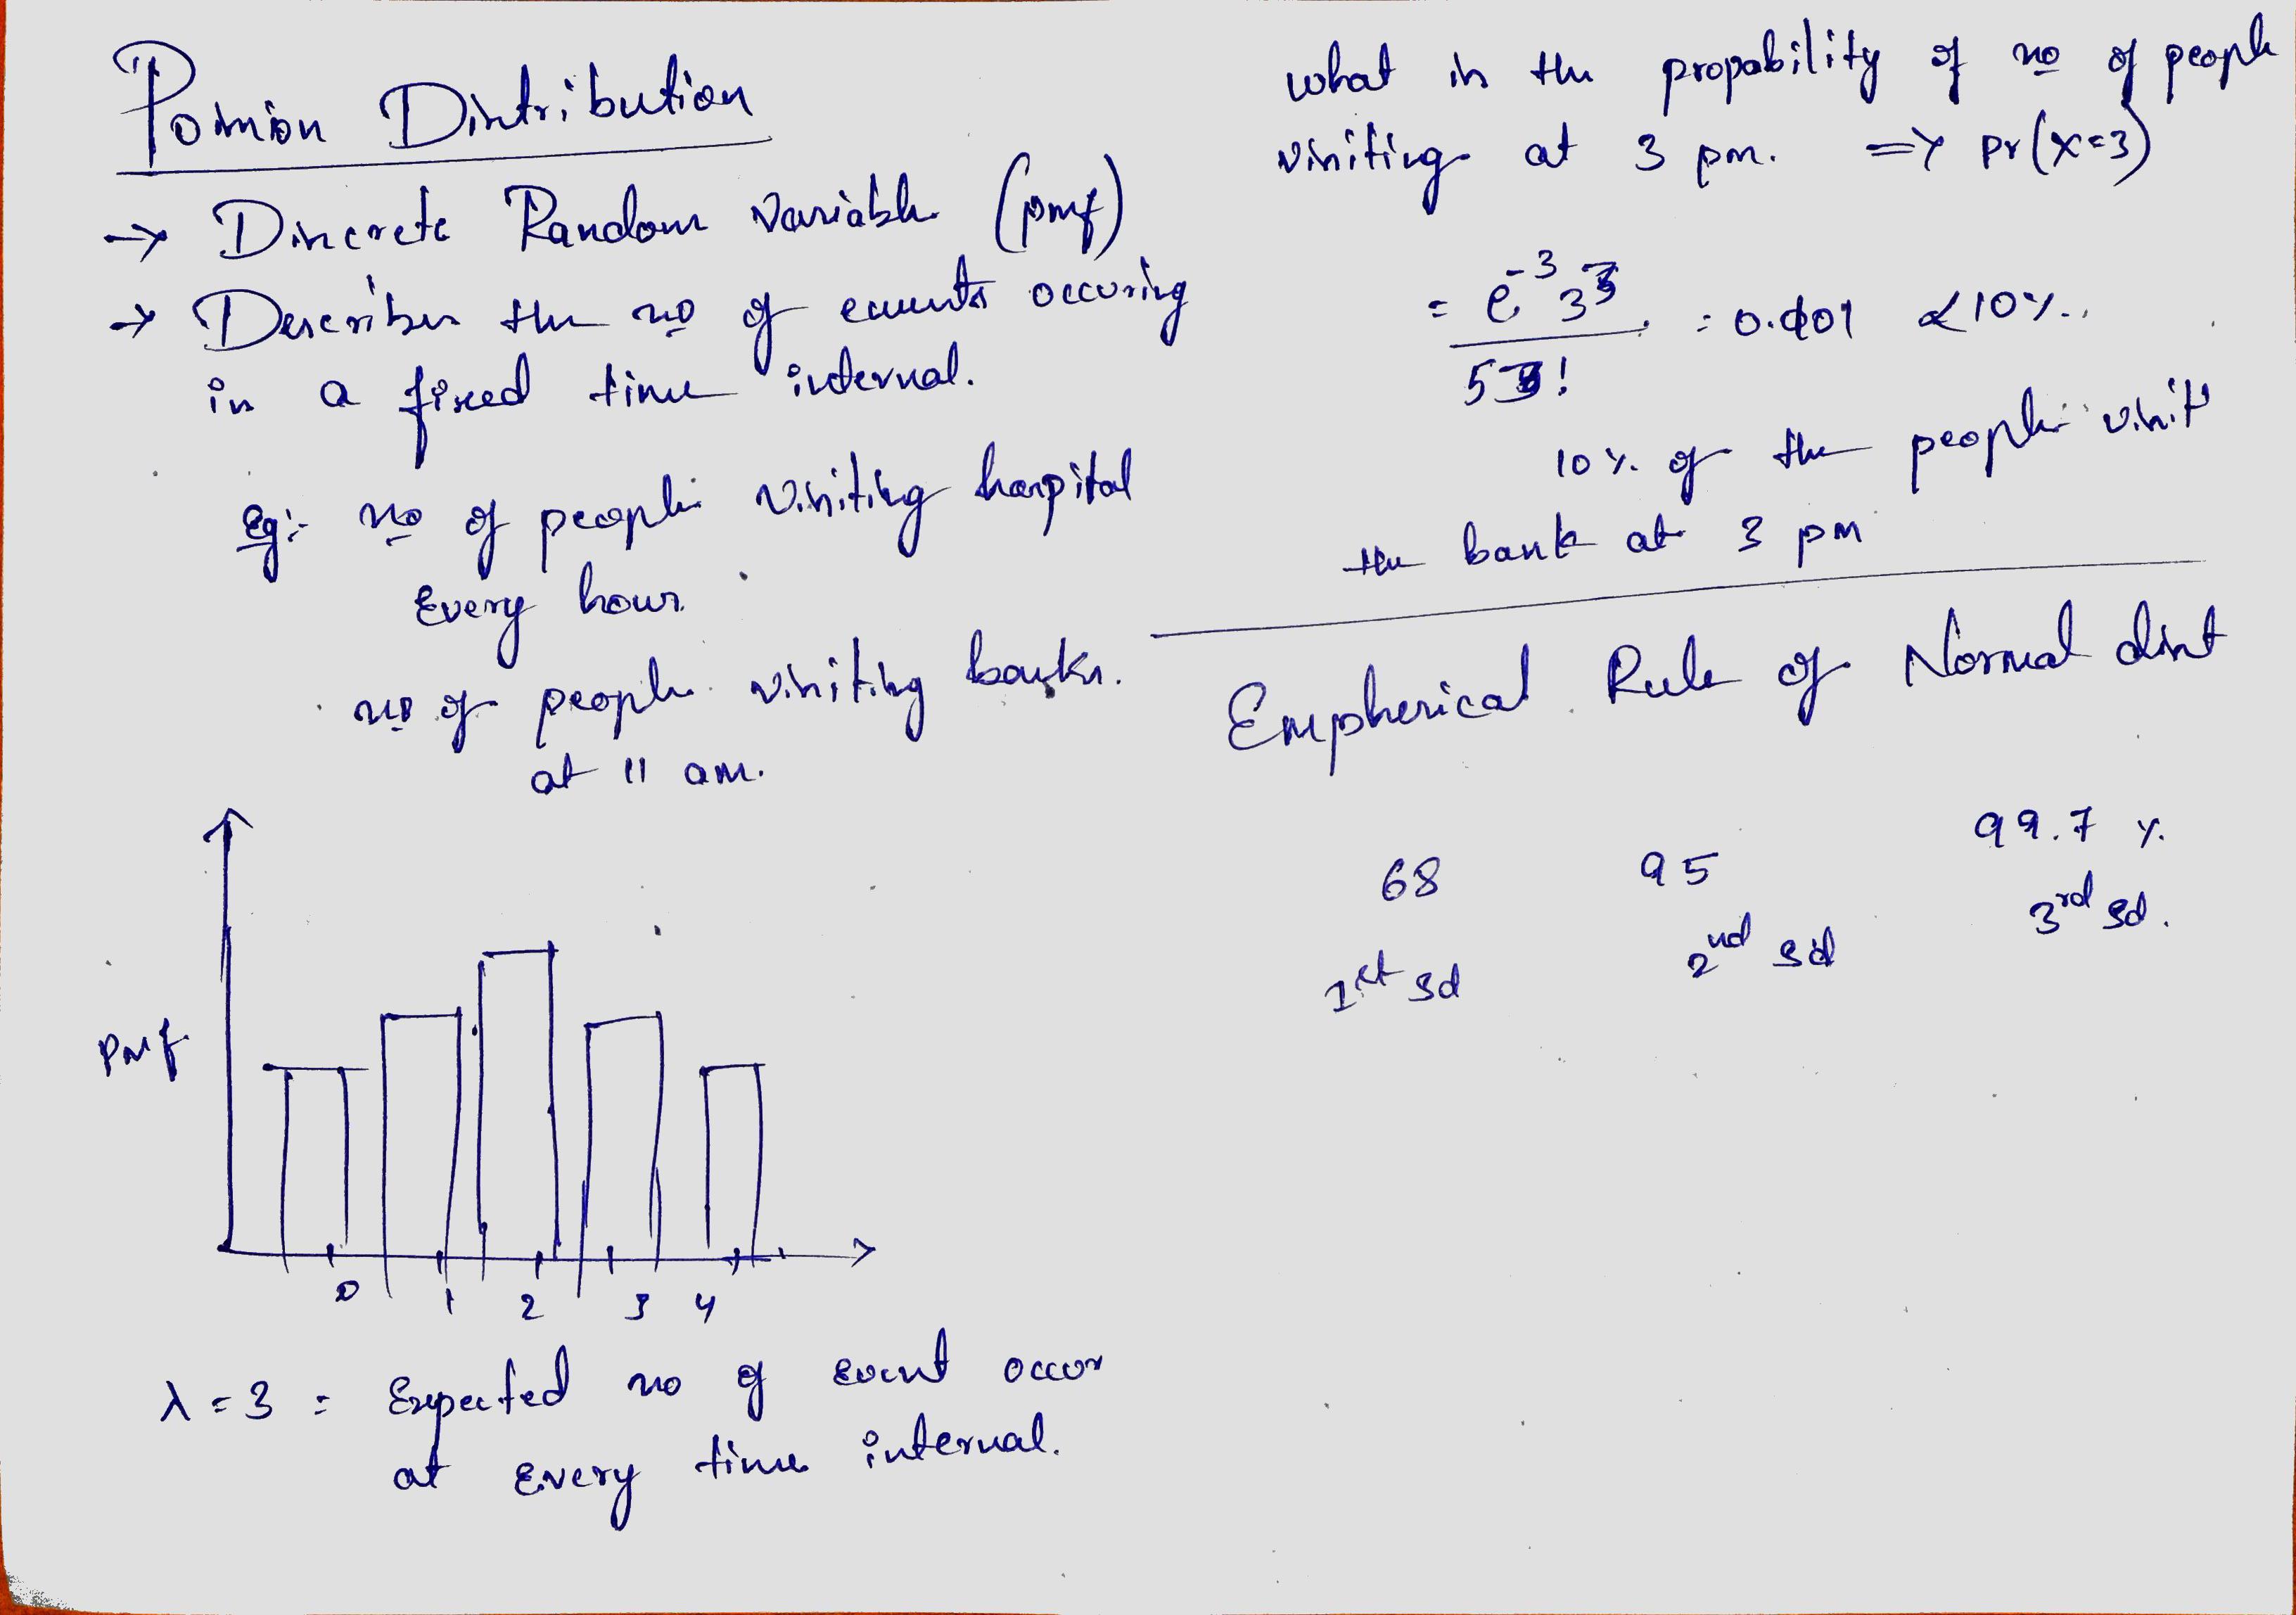 Poission Distribution
→ Discrete Random Variable (pmf)
→ Describes the no of events occuring
in a fixed time interval.
Eg:- no of people visiting hospital
Every hour
no of people visiting banks.
at 11 am.
pmf
0 1 2 3 4
λ = 3 = Expected no of event occur
at every time interval.
what is the propability of no of people
visiting at 3 pm. => pr(x=3)
= e^-3 3^3 / 5! = 0.101 ∠10%.
10% of the people visit
the bank at 3 pm
Empherical Rule of Normal dist
68 95 99.7 %
1st sd 2nd sd 3rd sd.